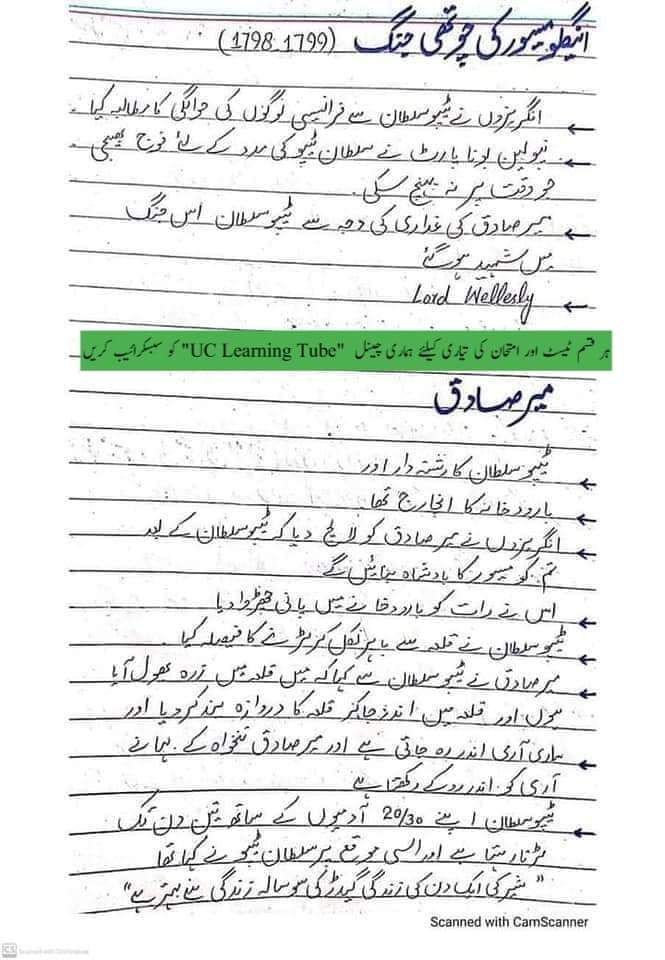 اینگلو میسور کی چوتھی جنگ (1798_1799)
← انگریزوں نے ٹیپو سلطان سے فرانسیسی لوگوں کی حوالگی کا مطالبہ کیا۔
← نپولین بونا پارٹ نے سلطان ٹیپو کی مدد کے لئے فوج بھیجی
جو وقت پر نہ پہنچ سکی۔
← میر صادق کی غداری کی وجہ سے ٹیپو سلطان اس جنگ
میں شہید ہو گئے
← Lord Wellesly
ہر قسم ٹیسٹ اور امتحان کی تیاری کیلئے ہماری چینل "UC Learning Tube" کو سبسکرائیب کریں
میر صادق
← ٹیپو سلطان کا رشتہ دار اور
← بارود خانہ کا انچارج تھا۔
← انگریزوں نے میر صادق کو لالچ دیا کہ ٹیپو سلطان کے بعد
تم کو میسور کا بادشاہ بنائیں گے
← اس نے رات کو بارود خانے میں پانی چھڑوا دیا
← ٹیپو سلطان نے قلعہ سے باہر نکل کر لڑنے کا فیصلہ کیا۔
← میر صادق نے ٹیپو سلطان سے کہا کہ میں قلعہ میں زرہ بھول آیا
ہوں اور قلعہ میں اندر جا کر قلعہ کا دروازہ بند کر دیا اور
← ساری آرمی اندر رہ جاتی ہے اور میر صادق تنخواہ کے بہانے
آرمی کو اندر روکے رکھتا ہے
← ٹیپو سلطان اپنے 20/30 آدمیوں کے ساتھ تین دن تک
لڑتا رہتا ہے اور اسی موقع پر سلطان ٹیپو نے کہا تھا
"شیر کی ایک دن کی زندگی گیدڑ کی سو سالہ زندگی سے بہتر ہے"
Scanned with CamScanner
CS Scanned with CamScanner